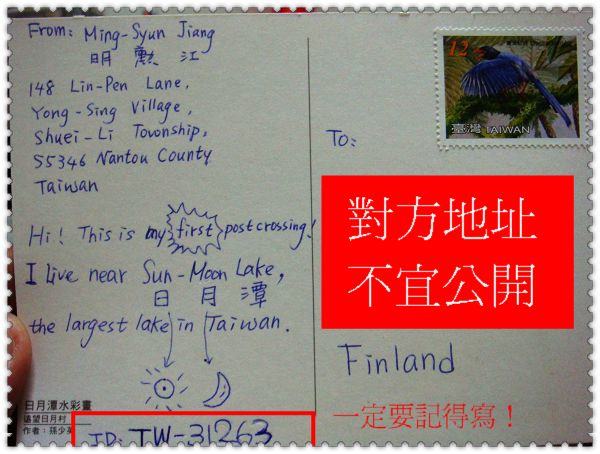 From: Ming-Syun Jiang
明勲江
148 Lin-Pen Lane,
Yong-Sing Village,
Shuei-Li Township,
55346 Nantou County
Taiwan
Hi! This is my first postcrossing!
I live near Sun-Moon Lake,
日月潭
the largest lake in Taiwan.
日月潭水彩畫
遠望日月村
作者：孫少英
ID: TW-31263
12
臺灣 TAIWAN
To:
對方地址
不宜公開
Finland
一定要記得寫！